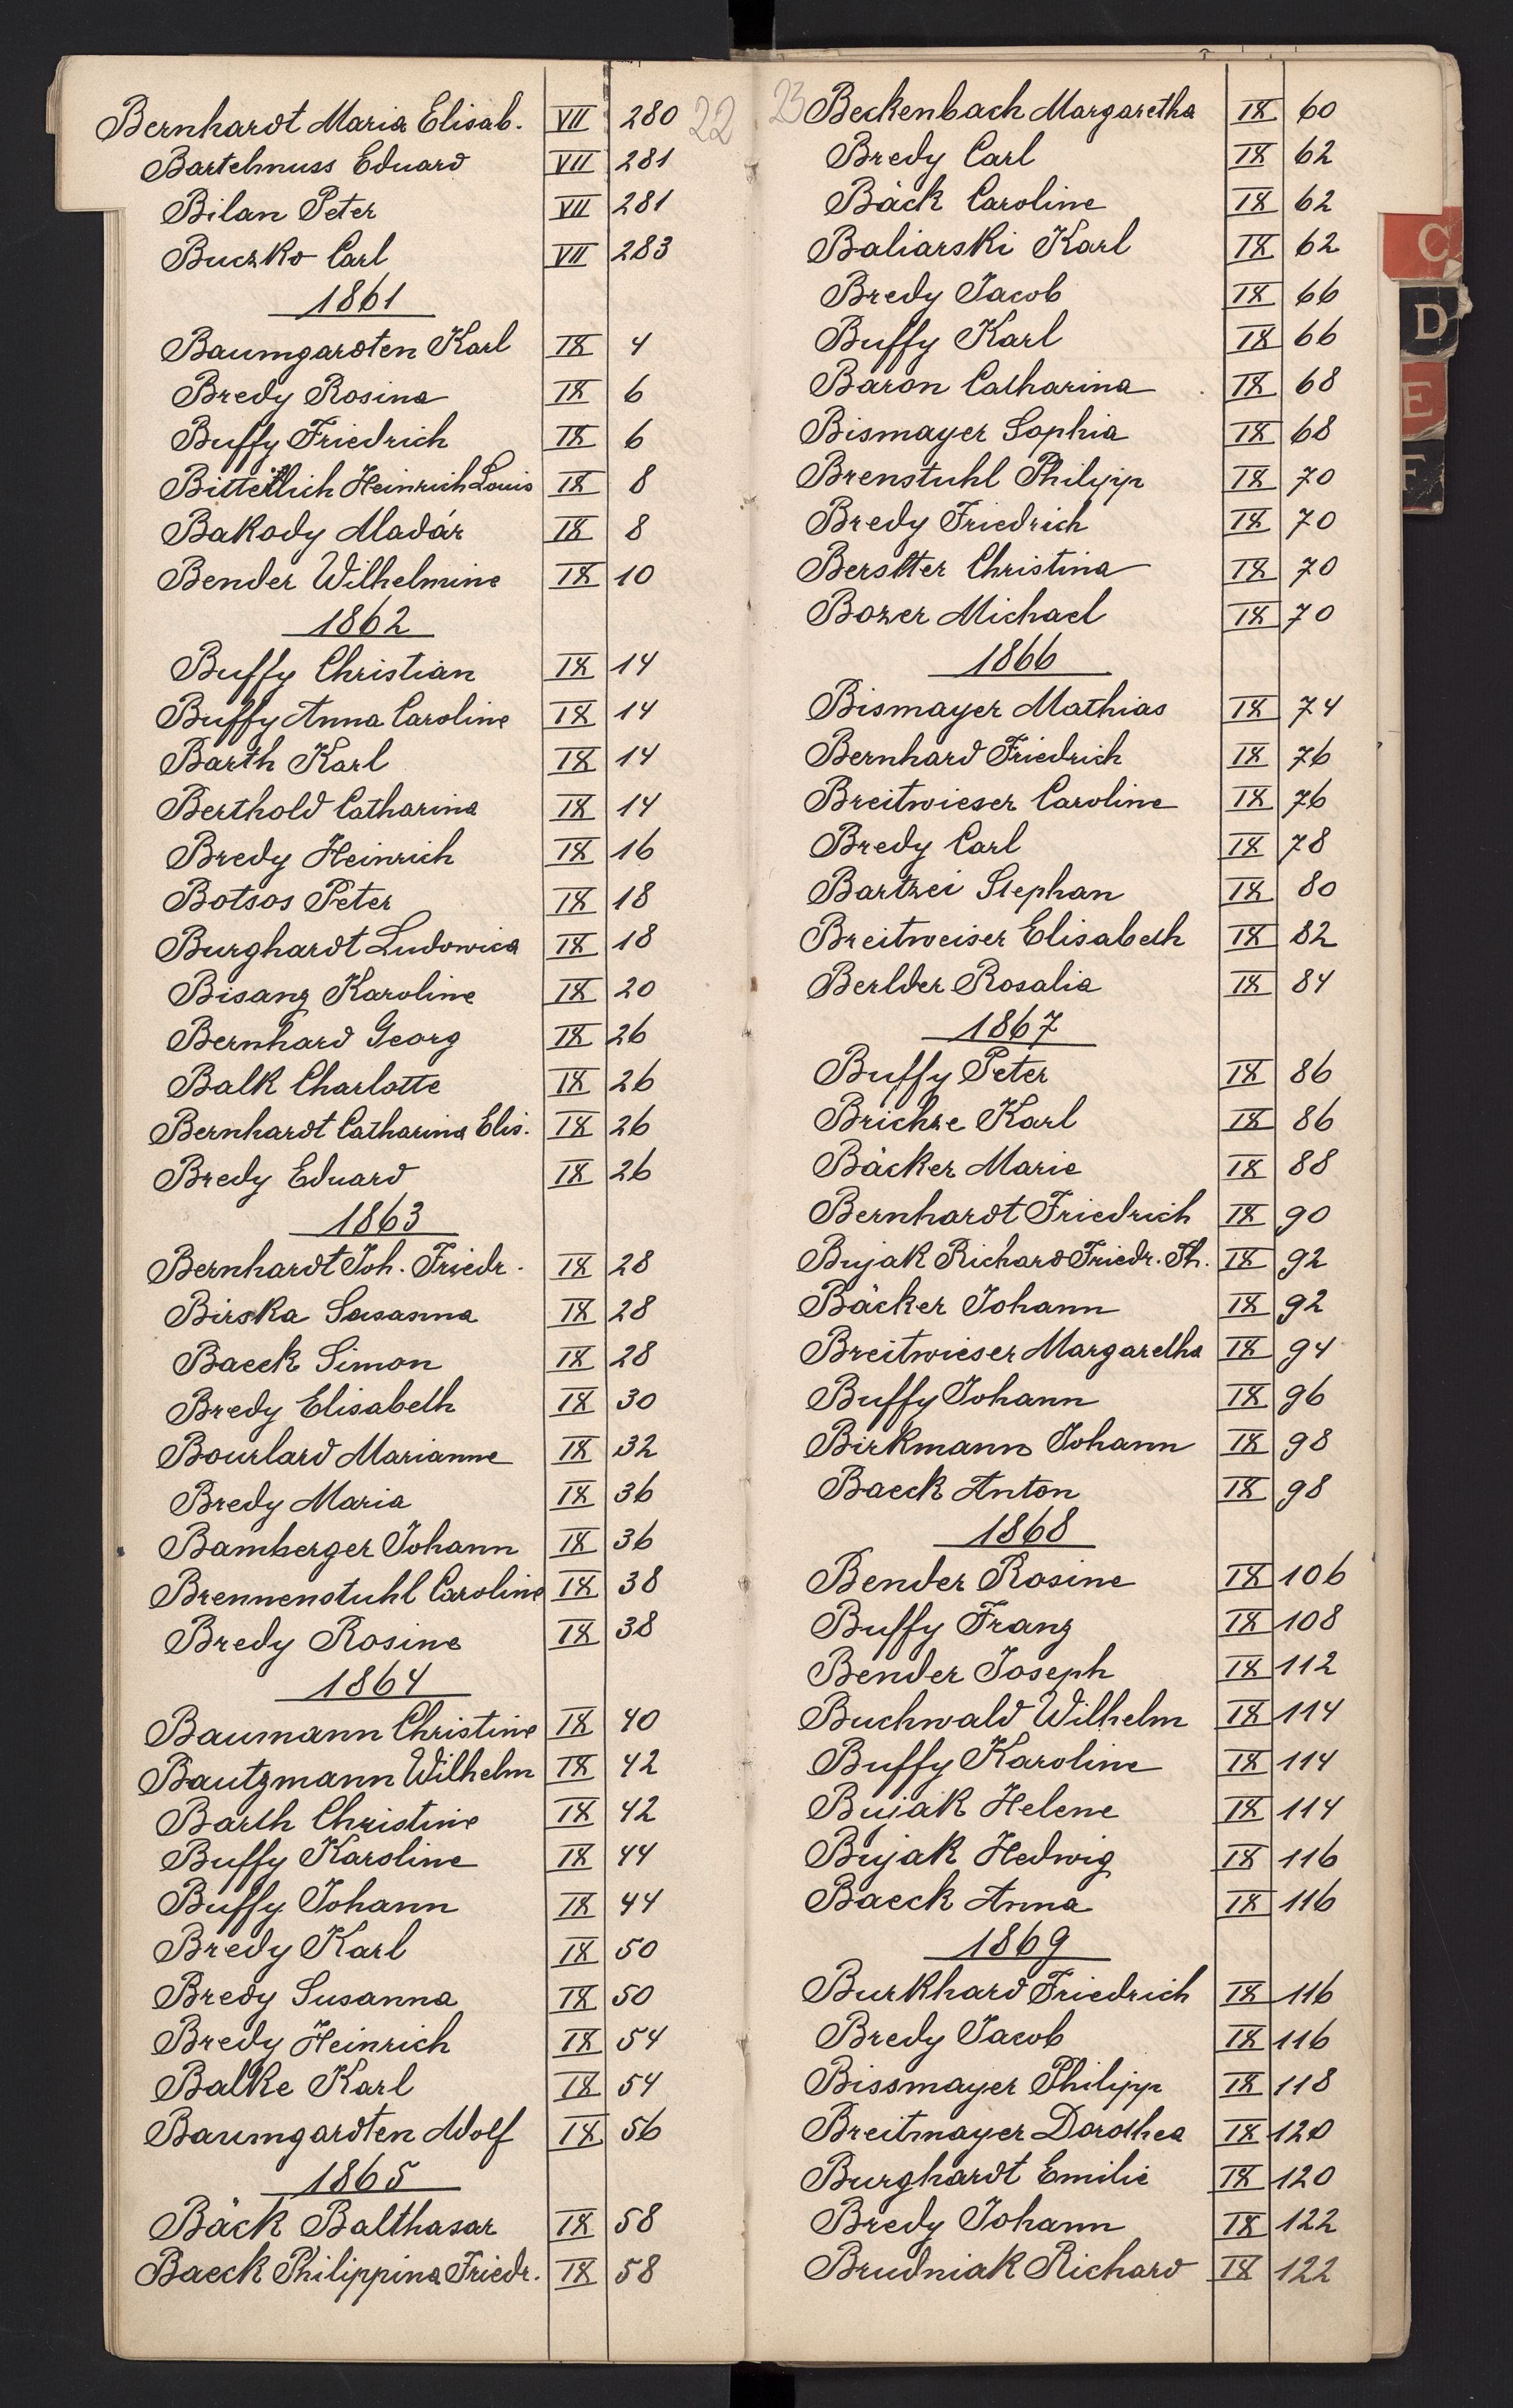 22
Bernhardt Maria Elisab. VII 280
Bartelmuss Eduard VII 281
Bilan Peter VII 281
Buczko Carl VII 283
1861
Baumgardten Karl IX 4
Bredy Rosina IX 6
Buffy Friedrich IX 6
Bitterlich Heinrich Louis IX 8
Bakody Aladár IX 8
Bender Wilhelmine IX 10
1862
Buffy Christian IX 14
Buffy Anna Caroline IX 14
Barth Karl IX 14
Berthold Catharina IX 14
Bredy Heinrich IX 16
Botsos Peter IX 18
Burghardt Ludowica IX 18
Bisanz Karoline IX 20
Bernhard Georg IX 26
Balk Charlotte IX 26
Bernhardt Catharina Elis. IX 26
Bredy Eduard IX 26
1863
Bernhardt Joh. Friedr. IX 28
Birska Susanna IX 28
Baeck Simon IX 28
Bredy Elisabeth IX 30
Bourlard Marianne IX 32
Bredy Maria IX 36
Bamberger Johann IX 36
Brennenstuhl Caroline IX 38
Bredy Rosine IX 38
1864
Baumann Christine IX 40
Bautzmann Wilhelm IX 42
Barth Christine IX 42
Buffy Karoline IX 44
Buffy Johann IX 44
Bredy Karl IX 50
Bredy Susanna IX 50
Bredy Heinrich IX 54
Balke Karl IX 54
Baumgardten Adolf IX 56
1865
Bäck Balthasar IX 58
Baeck Philippina Friedr. IX 58
23
Beckenbach Margaretha IX 60
Bredy Carl IX 62
Bäck Caroline IX 62
Baliarski Karl IX 62
Bredy Jacob IX 66
Buffy Karl IX 66
Baron Catharina IX 68
Bismayer Sophia IX 68
Brenstuhl Philipp IX 70
Bredy Friedrich IX 70
Christina IX 70
Bozer Michael IX 70
1866
Bismayer Mathias IX 74
Bernhard Friedrich IX 76
Breitwieser Caroline IX 76
Bredy Carl IX 78
Bartzei Stephan IX 80
Breitweiser Elisabeth IX 82
Berlder Rosalia IX 84
1867
Buffy Peter IX 86
Brichze Karl IX 86
Bäcker Marie IX 88
Bernhardt Friedrich IX 90
Bujak Richard Friedr. Th. IX 92
Bäcker Johann IX 92
Breitwieser Margaretha IX 94
Buffy Johann IX 96
Birkmann Johann IX 98
Baeck Anton IX 98
1868
Bender Rosine IX 106
Buffy Franz IX 108
Bender Joseph IX 112
Buchwald Wilhelm IX 114
Buffy Karoline IX 114
Bujak Helene IX 114
Bujak Hedwig IX 116
Baeck Anna IX 116
1869
Burkhard Friedrich IX 116
Bredy Jacob IX 116
Bissmayer Philipp IX 118
Breitmayer Dorothea IX 120
Burghardt Emilie IX 120
Bredy Johann IX 122
Brudniak Richard IX 122
C
D
E
F